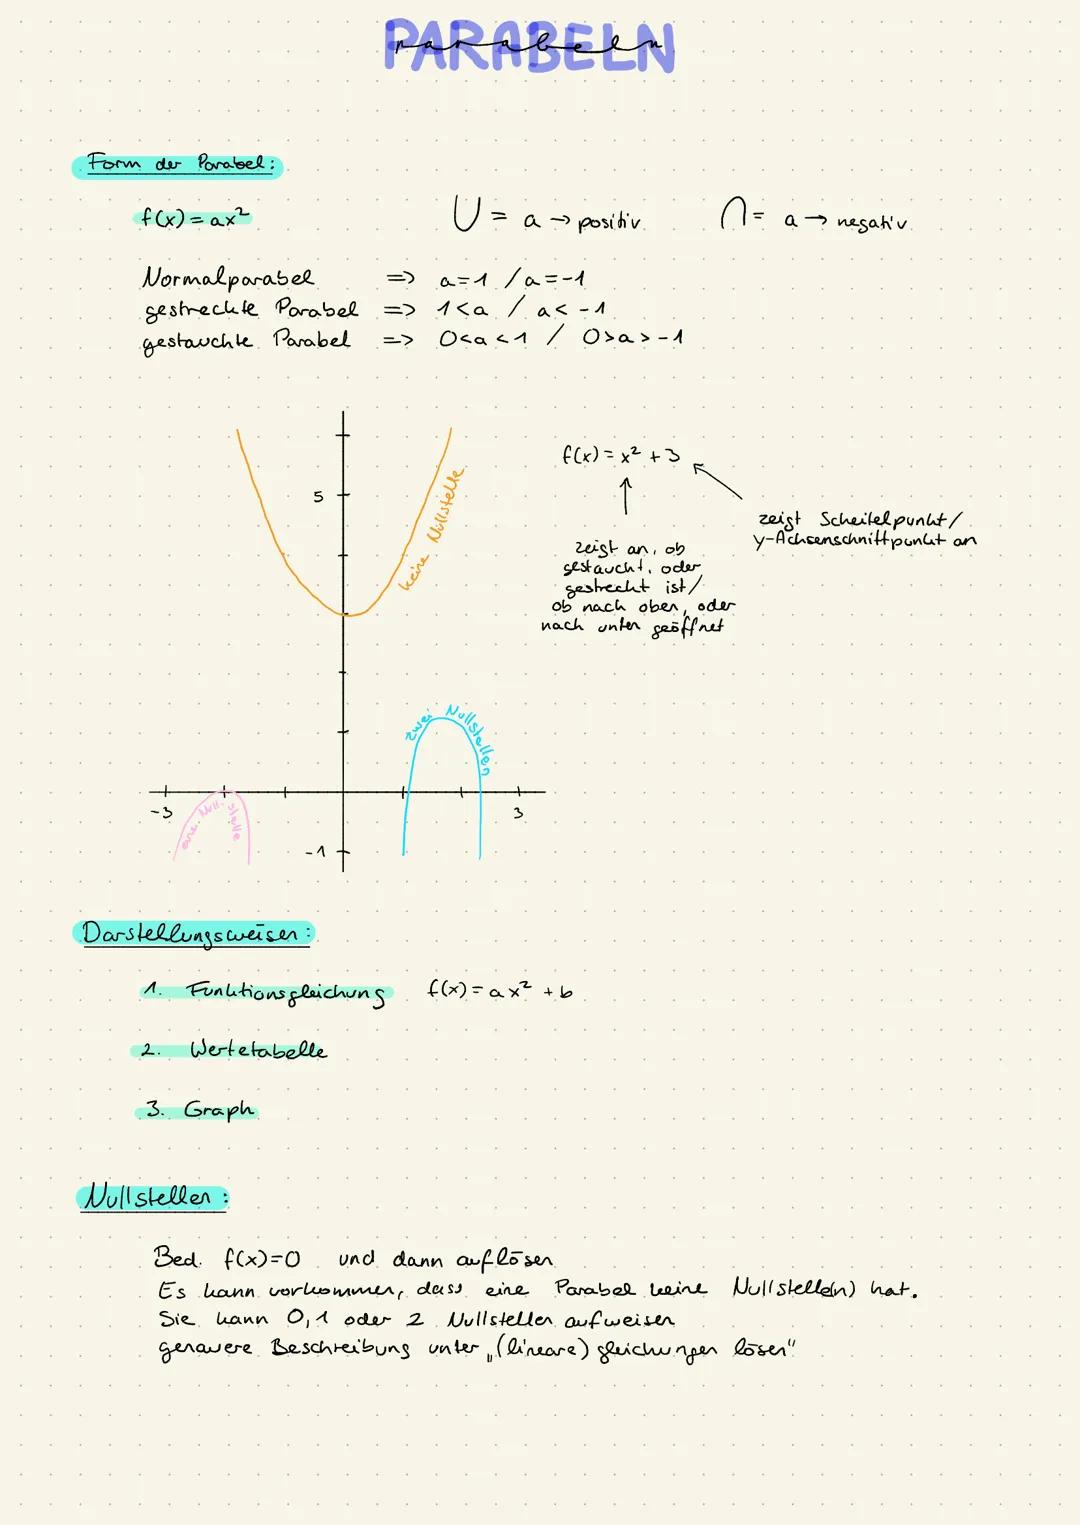 PARABELN
parabeln
Form der Parabel:
f(x) = ax²
U = a → positiv
∩ = a → negativ
Normalparabel => a=1 / a=-1
gestreckte Parabel => 1<a / a<-1
gestauchte Parabel => 0<a<1 / 0>a>-1
5
keine Nullstelle
f(x) = x² + 3
zeigt Scheitelpunkt/
y-Achsenschnittpunkt an
zeigt an, ob
gestaucht, oder
gestreckt ist/
ob nach oben, oder
nach unten geöffnet
zwei Nullstellen
-3
eine Null-stelle
3
-1
Darstellungsweisen:
1. Funktionsgleichung f(x) = ax² + b
2. Wertetabelle
3. Graph
Nullstellen:
Bed. f(x)=0 und dann auflösen
Es kann vorkommen, dass eine Parabel keine Nullstelle(n) hat.
Sie kann 0,1 oder 2 Nullstellen aufweisen
genauere Beschreibung unter „(lineare) gleichungen lösen"